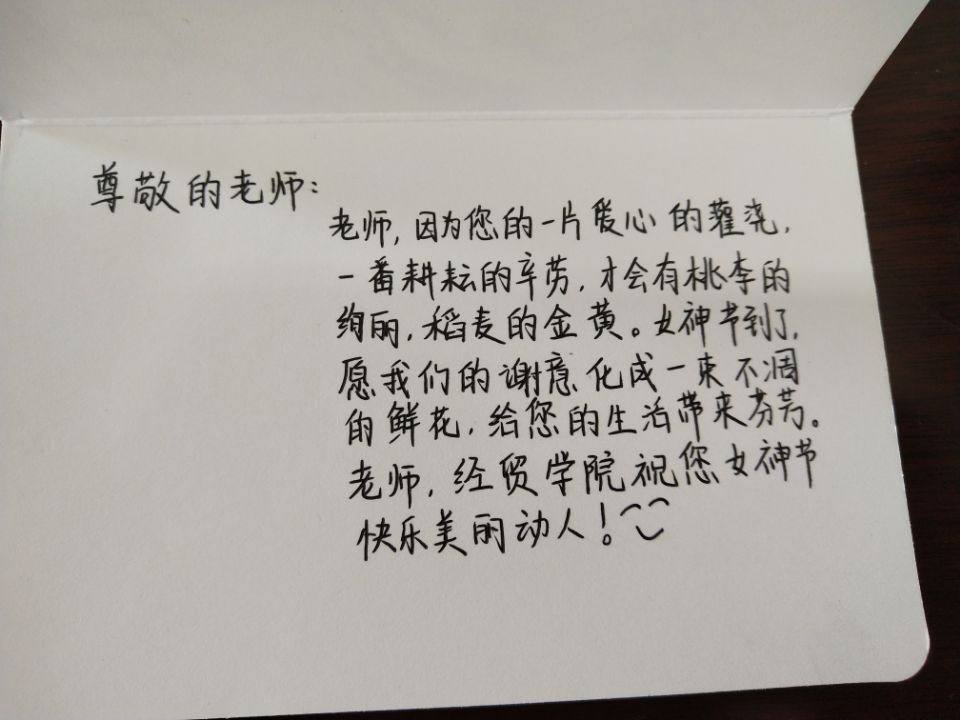 尊敬的老师:
老师,因为您的一片爱心的灌浇,
一番耕耘的辛劳,才会有桃李的
绚丽,稻麦的金黄。女神节到了,
愿我们的谢意化成一束不凋
的鲜花,给您的生活带来芬芳。
老师,经贸学院祝您女神节
快乐美丽动人!